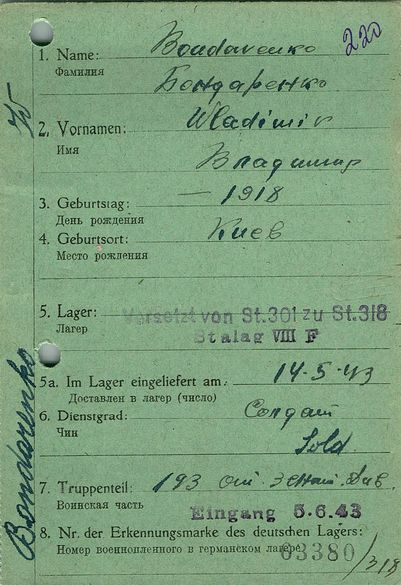 220
1. Name: Bondarenko
Фамилия Бондаренко
75
2. Vornamen: Wladimir
Имя Владимир
3. Geburtstag: — 1918
День рождения
4. Geburtsort: Киев
Место рождения
5. Lager: Versetzt von St.301 zu St.318
Лагер Stalag VIII F
5a. Im Lager eingeliefert am: 14-5-43
Доставлен в лагер (число)
6. Dienstgrad: Солдат
Чин Sold.
7. Truppenteil: 193 Див.
Воинская часть Eingang 5.6.43
8. Nr. der Erkennungsmarke des deutschen Lagers:
Номер военнопленного в германском лагере 03380/318
Bondarenko